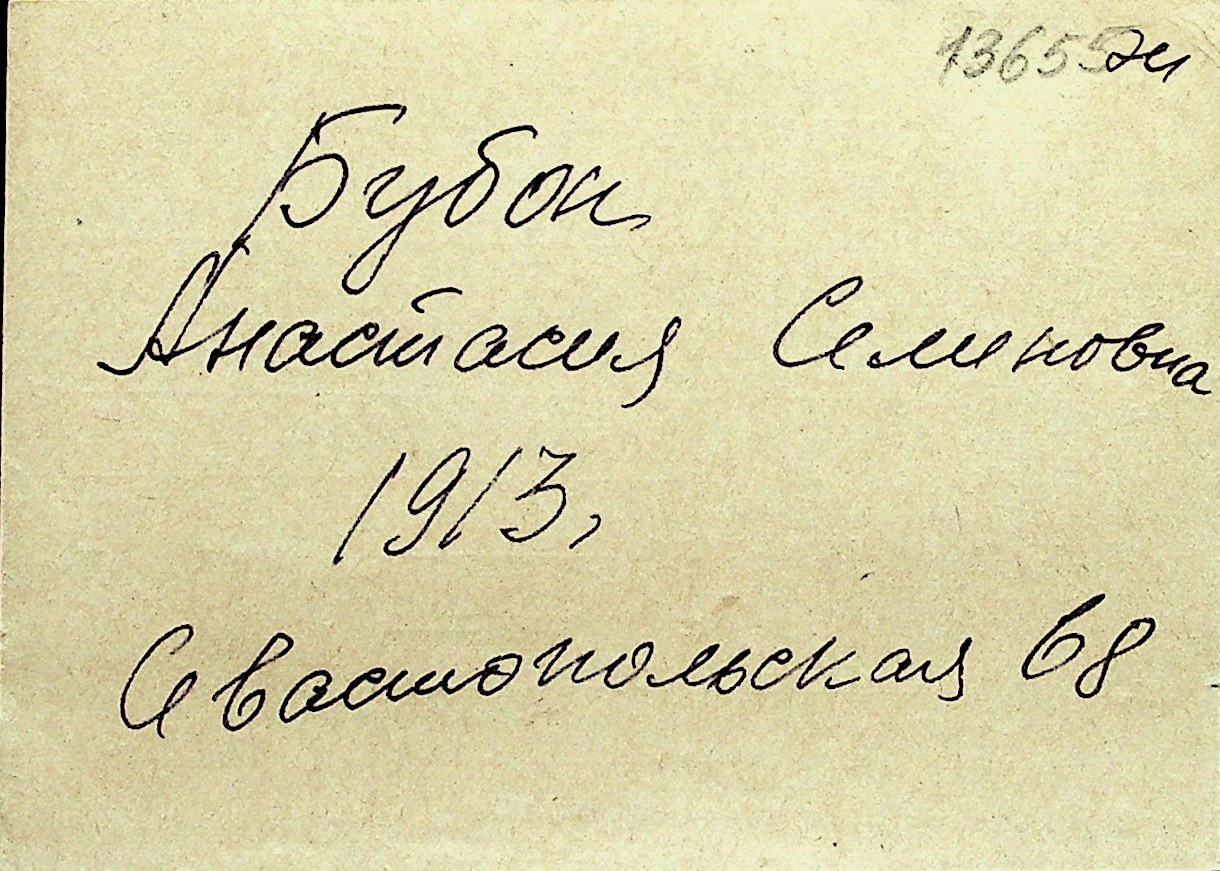 13655 эи
Бубон
Анастасия Семеновна
1913,
Севастопольская 68